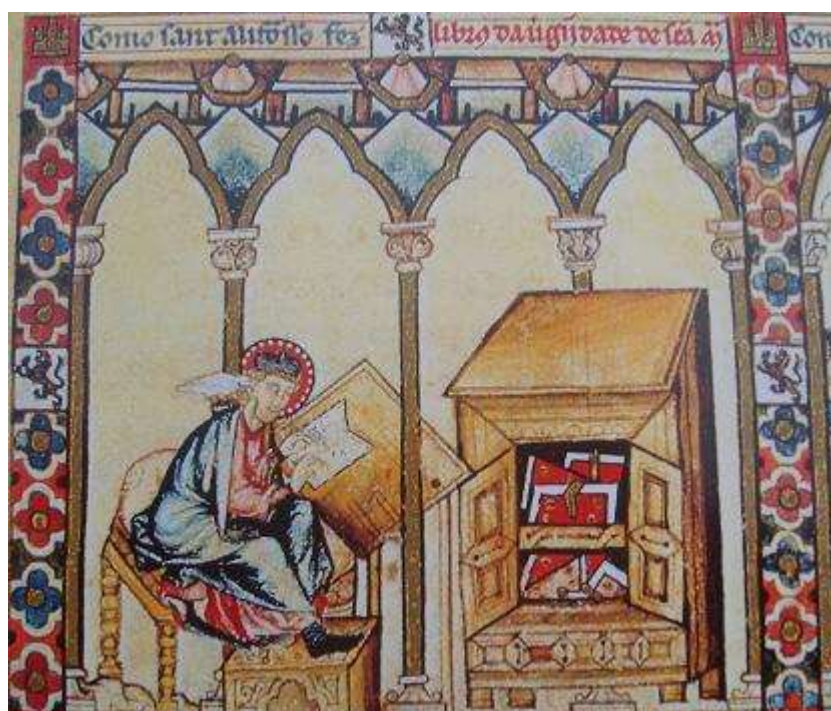 Como sant alifõsso fez libro da uĩgĩidade de scã Com